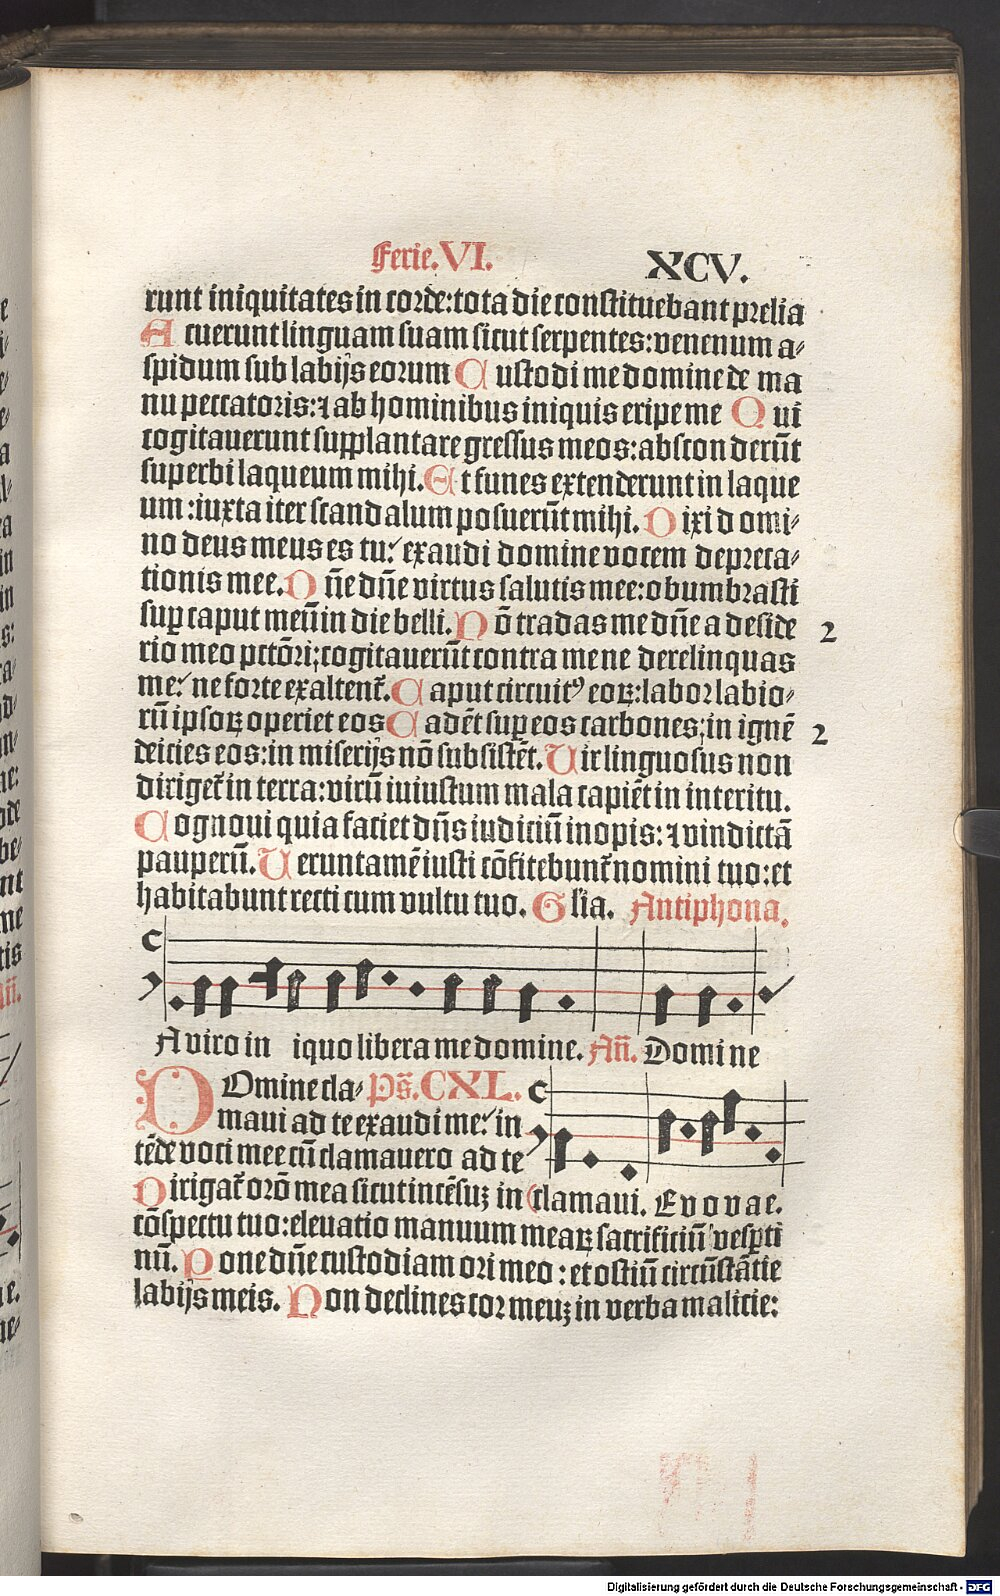 Ferie.VI. XCV.
runt iniquitates in corde: tota die constituebant prelia
Acuerunt linguam suam sicut serpentes: venenum a⸗
spidum sub labijs eorum Custodi me domine de ma
nu peccatoris: ⁊ ab hominibus iniquis eripe me Qui
cogitauerunt supplantare gressus meos: absconderūt
superbi laqueum mihi. Et funes extenderunt in laque
um: iuxta iter scandalum posuerūt mihi. Dixi domi⸗
no deus meus es tu: exaudi domine vocem depreca⸗
tionis mee. Dn̄e dn̄e virtus salutis mee: obumbrasti
suꝑ caput meū in die belli. Nō tradas me dn̄e a deside 2
rio meo pctōri; cogitauerūt contra me ne derelinquas
me: ne forte exaltent᷑. Caput circuitꝰ eoꝝ: labor labio⸗
rū ipsoꝝ operiet eos Cadēt suꝑ eos carbones; in ignē 2
deicies eos: in miserijs nō subsistēt. Vir linguosus non
diriget᷑ in terra: virū iniustum mala capiēt in interitu.
Cognoui quia faciet dn̄s iudiciū inopis: ⁊ vindictā
pauperū. Veruntamē iusti cōfitebunt᷑ nomini tuo: et
habitabunt recti cum vultu tuo. Glīa. Antiphona.
A viro in iquo libera me domine. Añ. Domine
DOmine cla⸗ Ps̄. CXL.
maui ad te exaudi me: in
tēde voci mee cū clamauero ad te
Dirigat᷑ orō mea sicut incēsuꝫ in (clamaui. Evovae.
cōspectu tuo: eleuatio manuum meaꝝ sacrificiū vesꝑti
nū. Pone dn̄e custodiam ori meo: et ostiū circūstātie
labijs meis. Non declines cor meuꝫ in verba malicie:
Digitalisierung gefördert durch die Deutsche Forschungsgemeinschaft - DFG